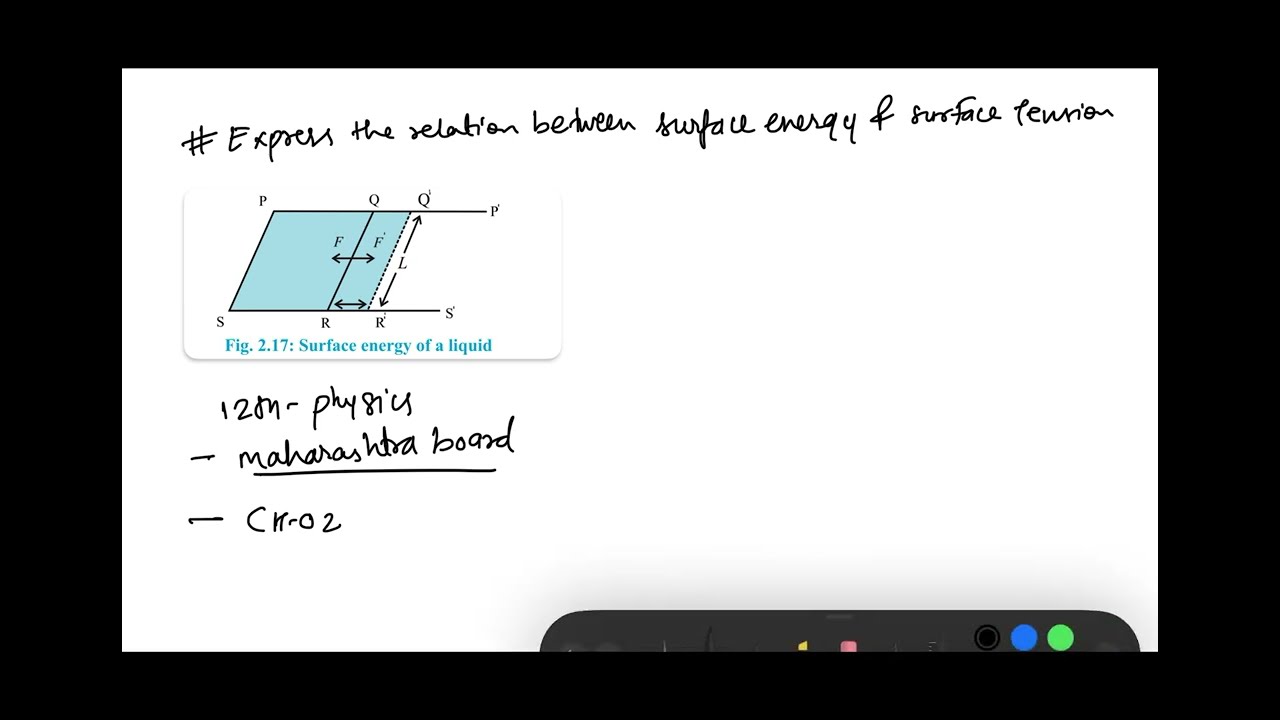 # Express the relation between surface energy & surface tension
P Q Q' P'
F F'
L
S R R' S'
Fig. 2.17: Surface energy of a liquid
12th- physics
- maharashtra board
- CH-02